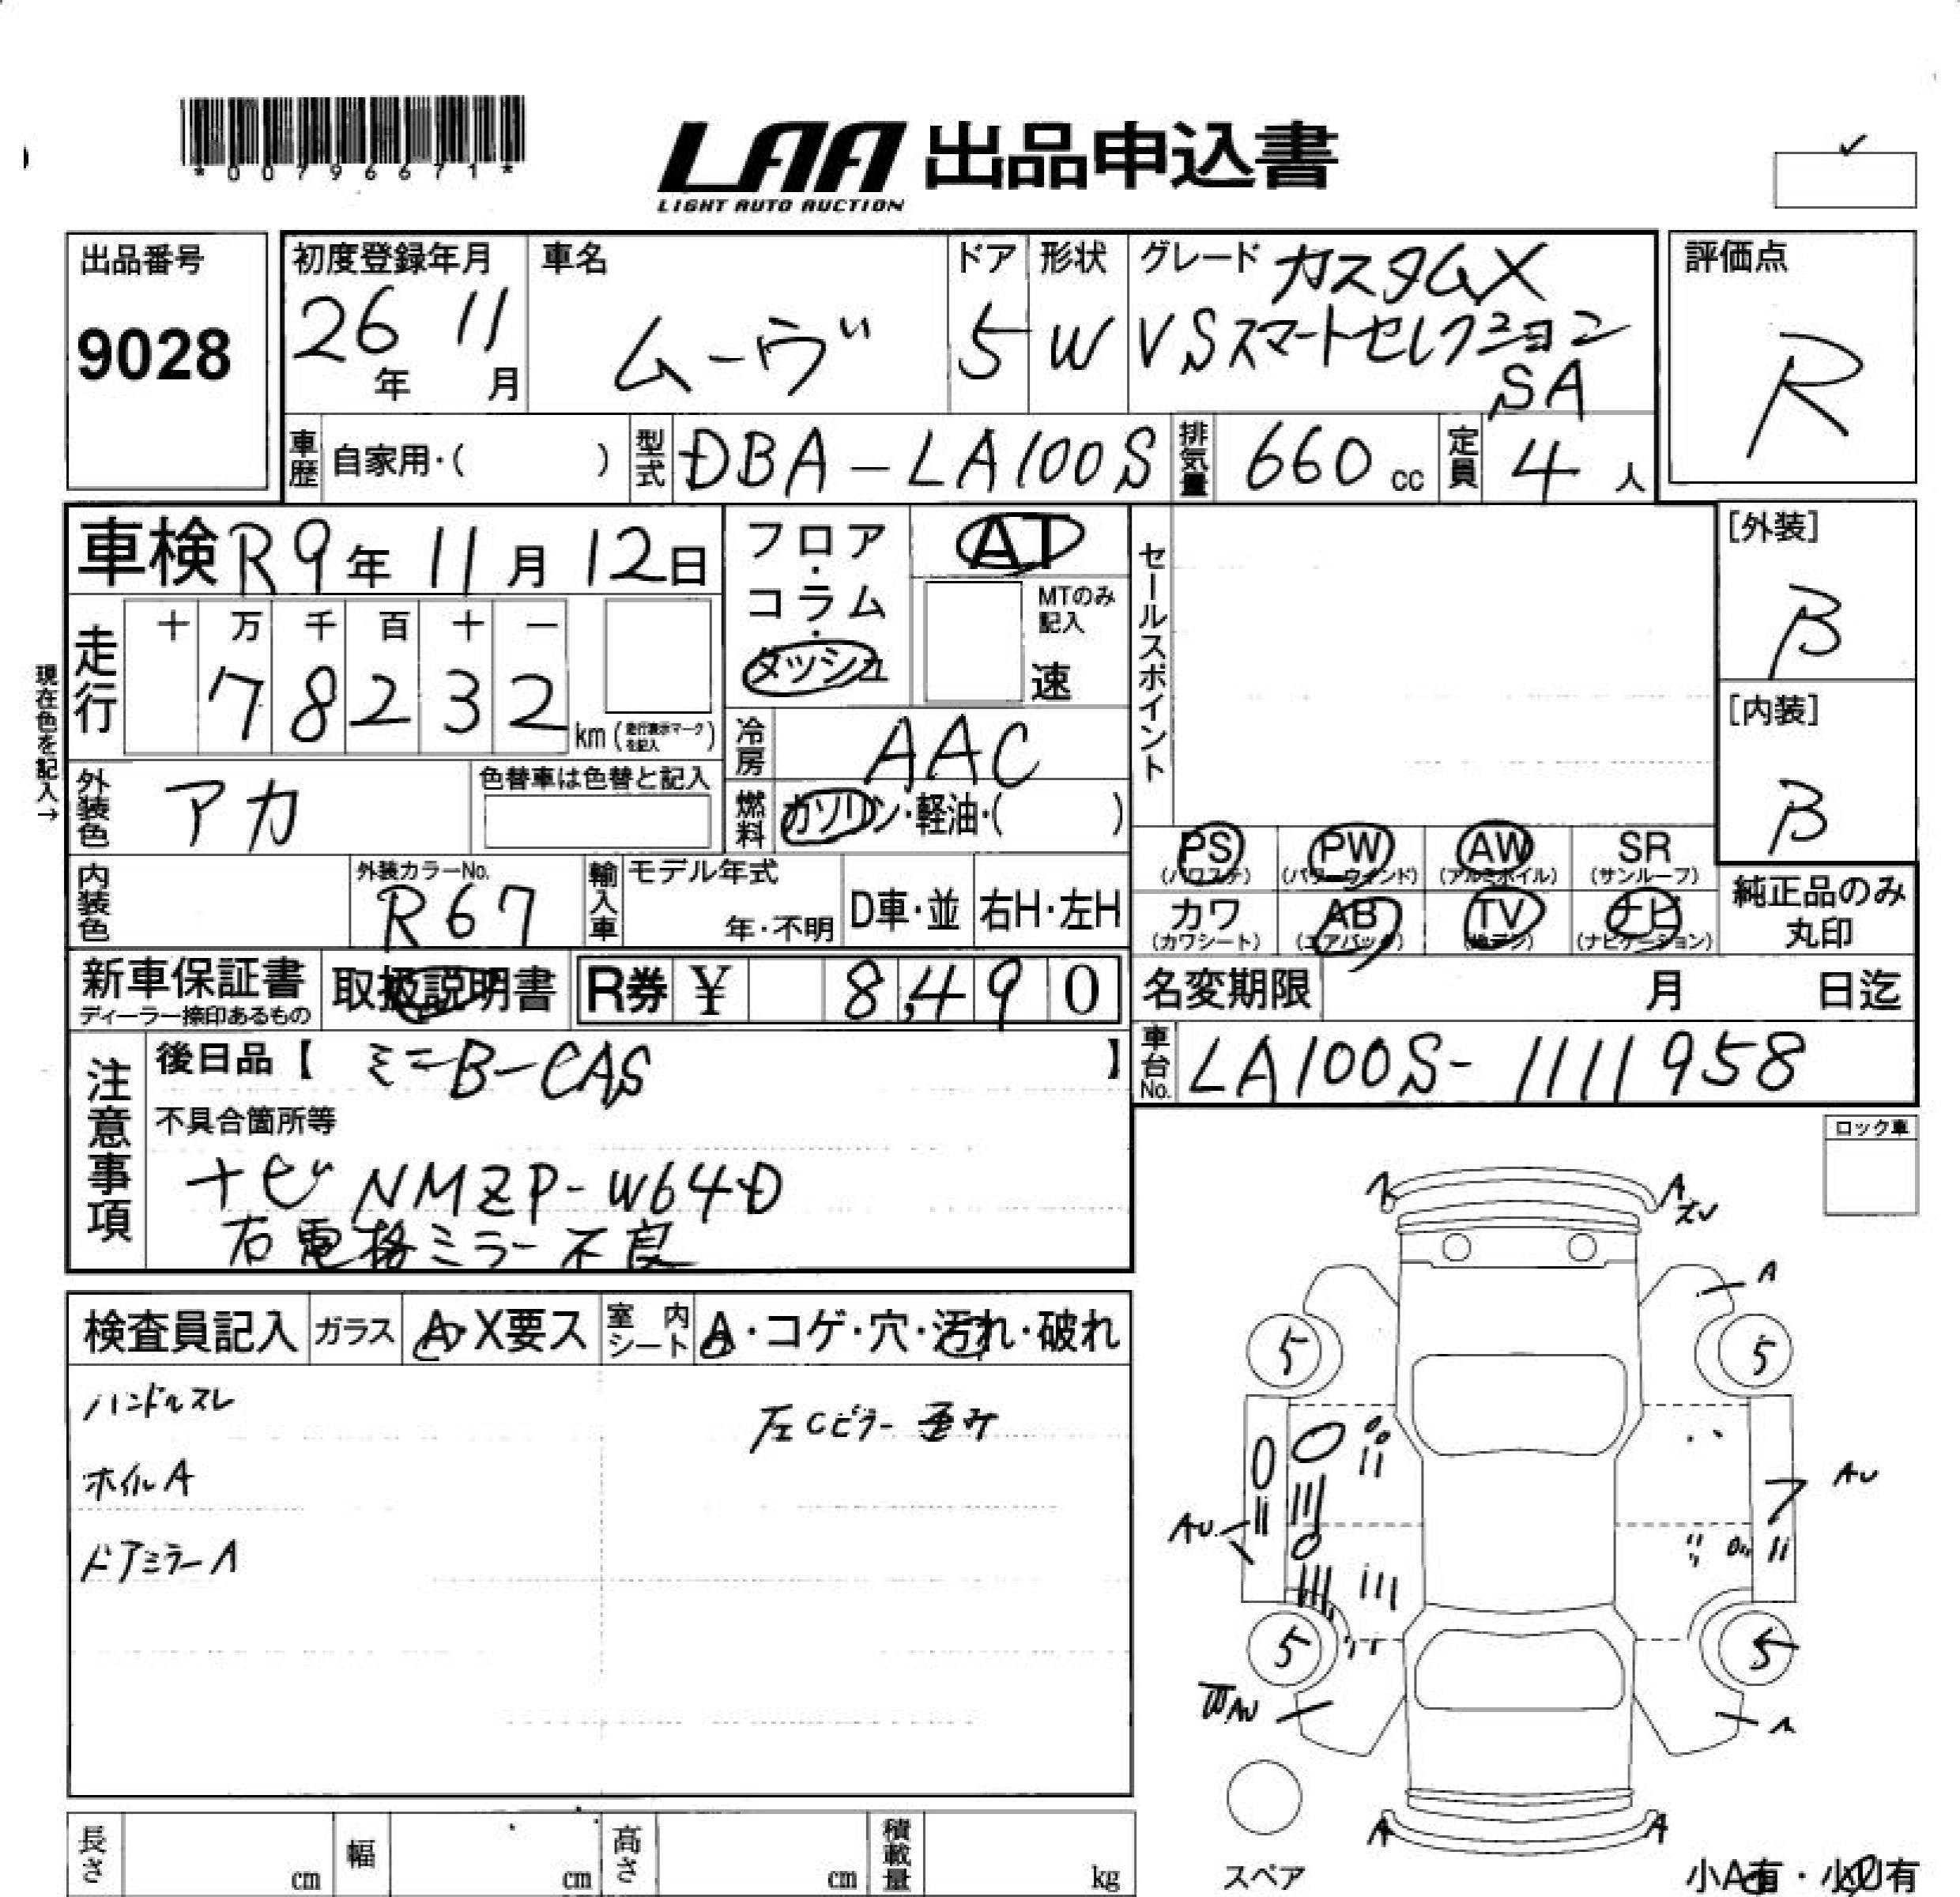 *00796671*
LAA 出品申込書
LIGHT AUTO AUCTION
出品番号
9028
初度登録年月
26年 11月
車名
ムーヴ
ドア
5
形状
W
グレード カスタムX
VSスマートセレクション
SA
評価点
R
車歴 自家用・( )
型式 DBA-LA100S
排気量 660 cc
定員 4 人
車検 R9年 11月 12日
フロア・コラム・ダッシュ
AT
MTのみ記入
速
セールスポイント
[外装]
B
[内装]
B
現在色を記入→
走行
十 万 千 百 十 一
7 8 2 3 2
km (走行表示マークを記入)
冷房 AAC
外装色 アカ
色替車は色替と記入
燃料 ガソリン・軽油・( )
PS (パワステ)
PW (パワーウインド)
AW (アルミホイル)
SR (サンルーフ)
カワ (カワシート)
AB (エアバック)
TV
ナビ (ナビゲーション)
純正品のみ
丸印
内装色
外装カラーNo.
R67
輸入車
モデル年式
年・不明
D車・並
右H・左H
新車保証書
ディーラー捺印あるもの
取扱説明書
R券 ¥ 8,490
名変期限 月 日迄
車台No. LA100S-1111958
注意事項
後日品【 ミニB-CAS 】
不具合箇所等
ナビ NMZP-W64D
右電格ミラー不良
ロック車
検査員記入
ガラス A・X要ス
室内シート A・コゲ・穴・汚れ・破れ
ハンドルスレ
左Cピラー歪み
ホイルA
ドアミラーA
A
A
A
5
5
AU
AU
5
5
A
A
スペア
小A有・小U有
長さ cm
幅 cm
高さ cm
積載量 kg